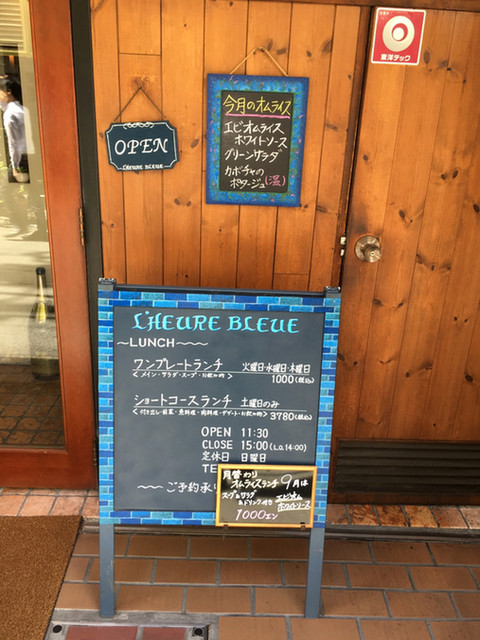 東洋テック
OPEN
L'HEURE BLEUE
今月のオムライス
エビオムライス
ホワイトソース
グリーンサラダ
カボチャの
ポタージュ(温)
L'HEURE BLEUE
〜LUNCH〜〜〜
ワンプレートランチ 火曜日・水曜日・木曜日
<メイン・サラダ・スープ・お飲み物> 1000(税込)
ショートコースランチ 土曜日のみ
<付き出し・前菜・魚料理・肉料理・デザート・お飲み物> 3780(税込)
OPEN 11:30
CLOSE 15:00(L.O.14:00)
定休日 日曜日
TE
〜〜ご予約承り
月替わり
オムライスランチ 9月は
スープ&サラダ
&ドリンク付き
エビオム
ホワイトソース
1000エン